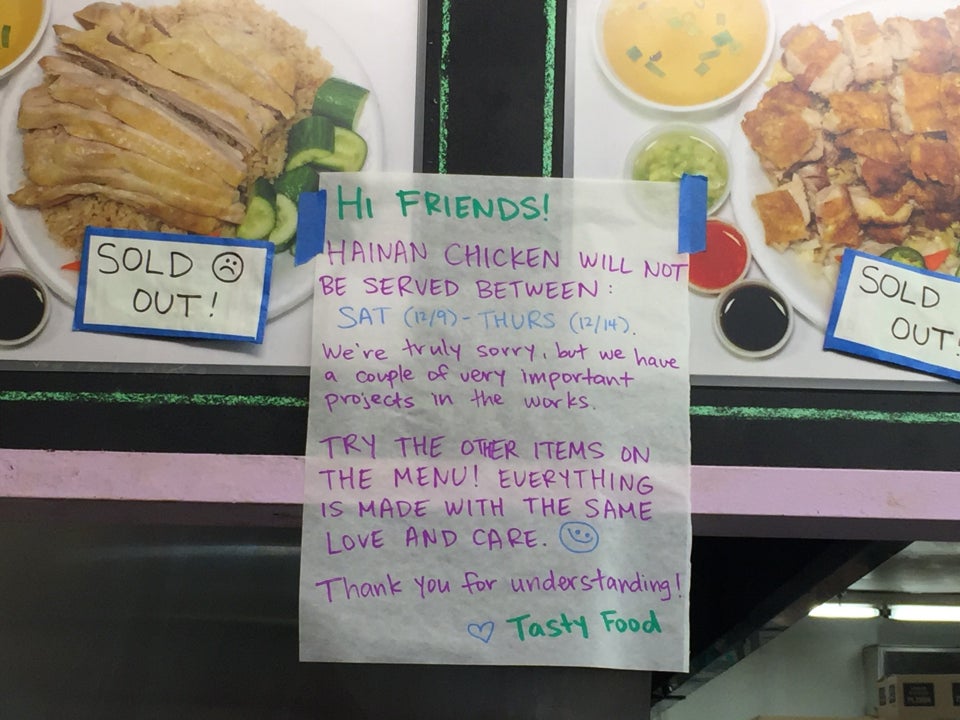 SOLD
OUT!
HI FRIENDS!
HAINAN CHICKEN WILL NOT
BE SERVED BETWEEN:
SAT (12/9)- THURS (12/14).
We're truly sorry, but we have
a couple of very important
projects in the works.
TRY THE OTHER ITEMS ON
THE MENU! EVERYTHING
IS MADE WITH THE SAME
LOVE AND CARE.
Thank you for understanding!
Tasty Food
SOLD
OUT!